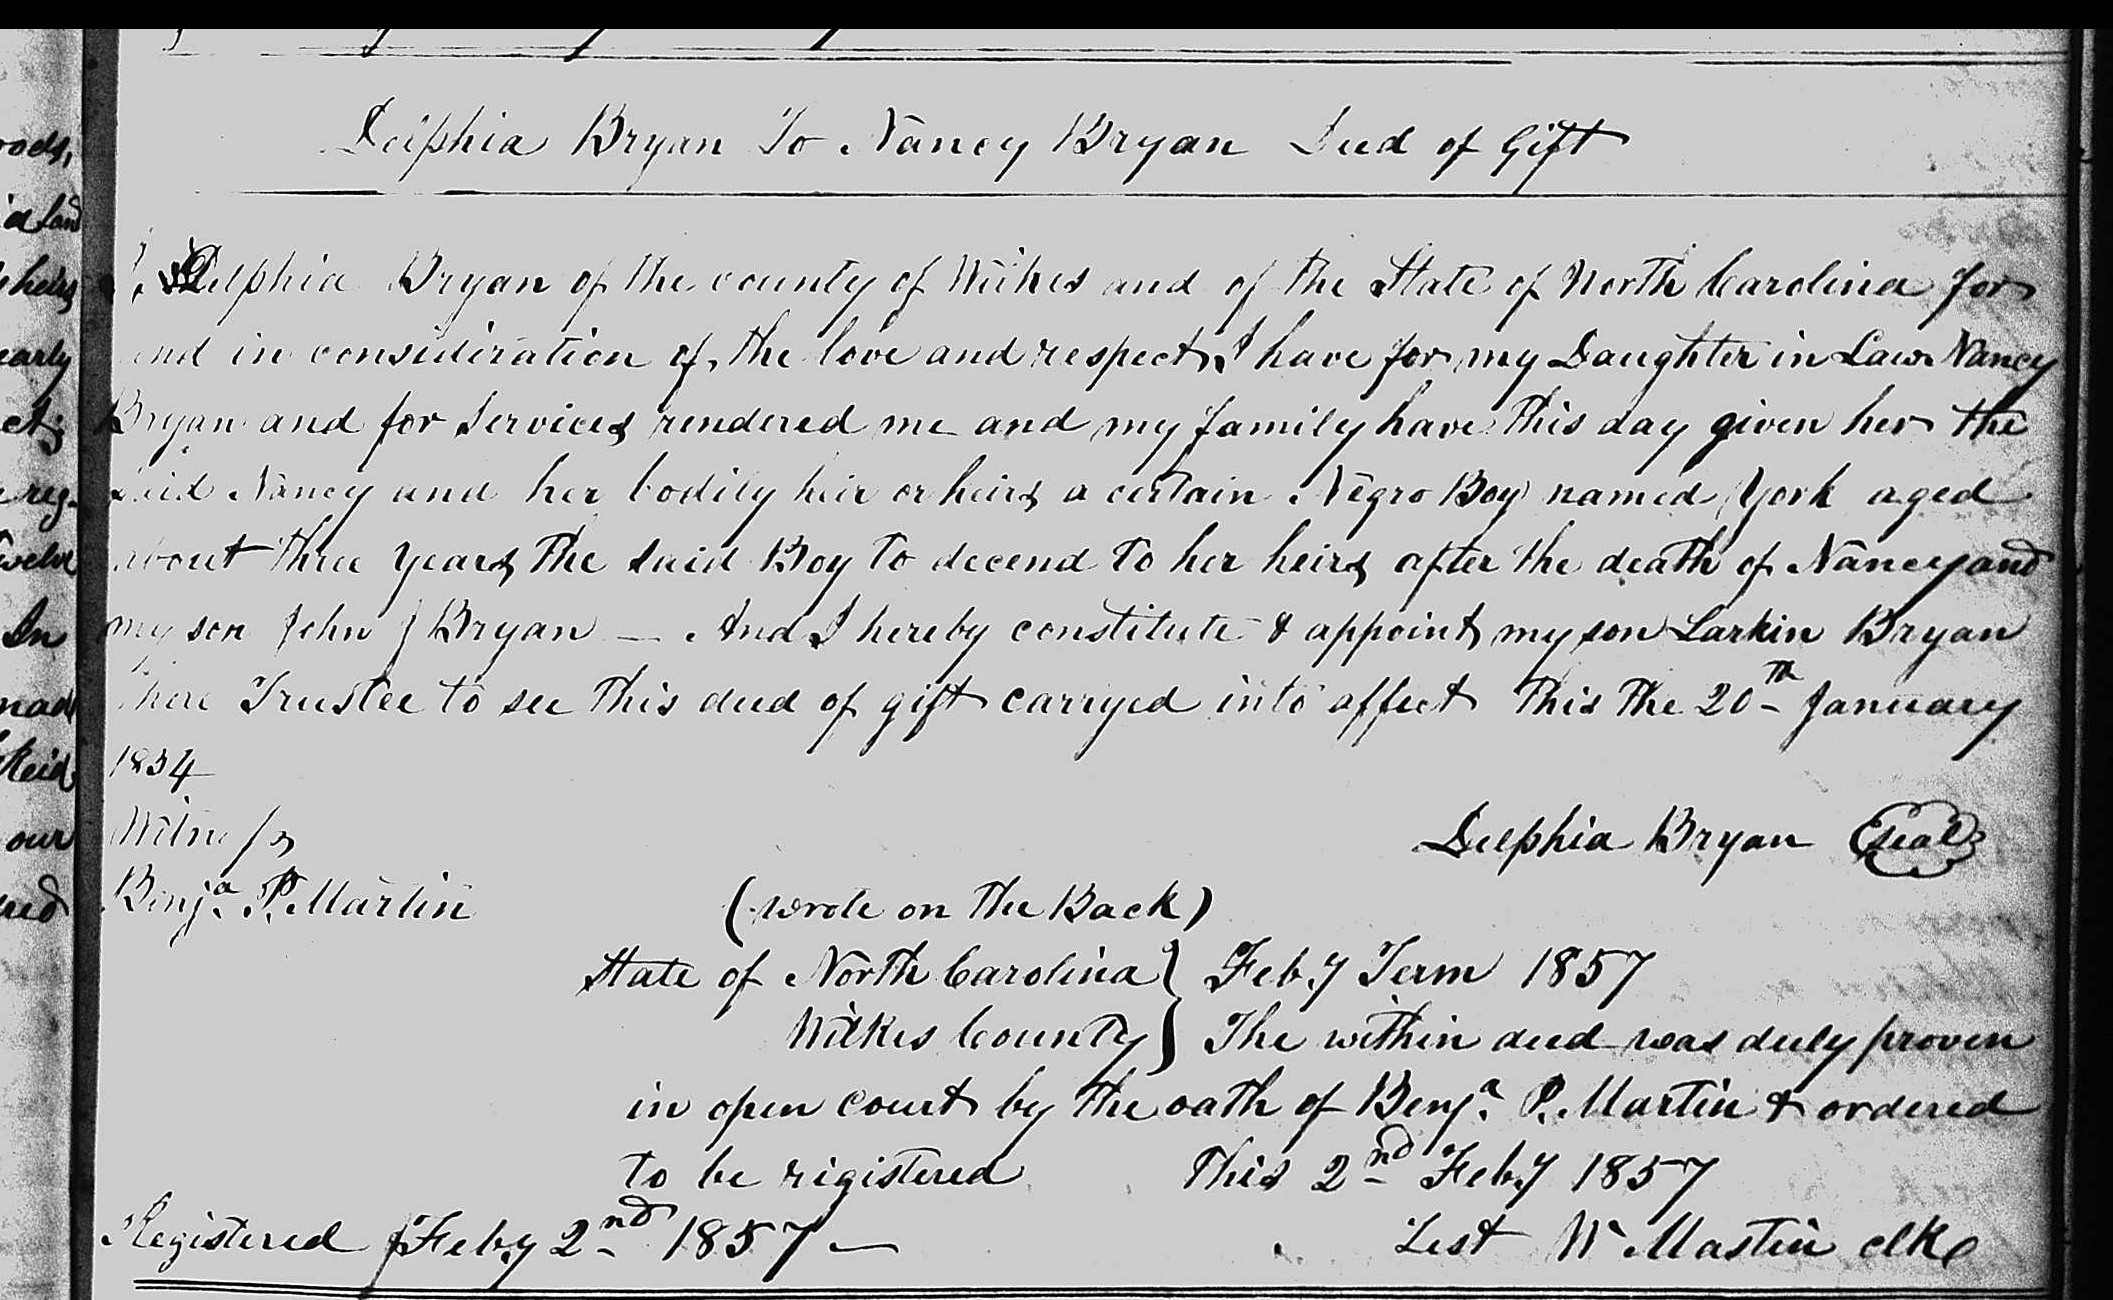 Delphia Bryan To Nancy Bryan Deed of Gift
I, Delphia Bryan of the county of Wilkes and of the State of North Carolina for
and in consideration of the love and respect I have for my Daughter in Law Nancy
Bryan and for Services rendered me and my family have this day given her the
said Nancy and her bodily heir or heirs a certain Negro Boy named York aged
about three years, the said Boy to decend to her heirs after the death of Nancy and
my son John J Bryan — And I hereby constitute & appoint my son Larkin Bryan
there Trustee to see this deed of gift carryed into affect This the 20th January
1854
Witness
Delphia Bryan (Seal)
Benja. P. Martin
(wrote on the Back)
State of North Carolina } Feby Term 1857
Wilkes County } The within deed was duly proven
in open court by the oath of Benja. P. Martin & ordered
to be registered This 2nd Feby 1857
Registered Feby 2nd 1857 —
Test W Mastin clk
rods,
land
heirs
early
reg-
Twelve
In
Reid
our